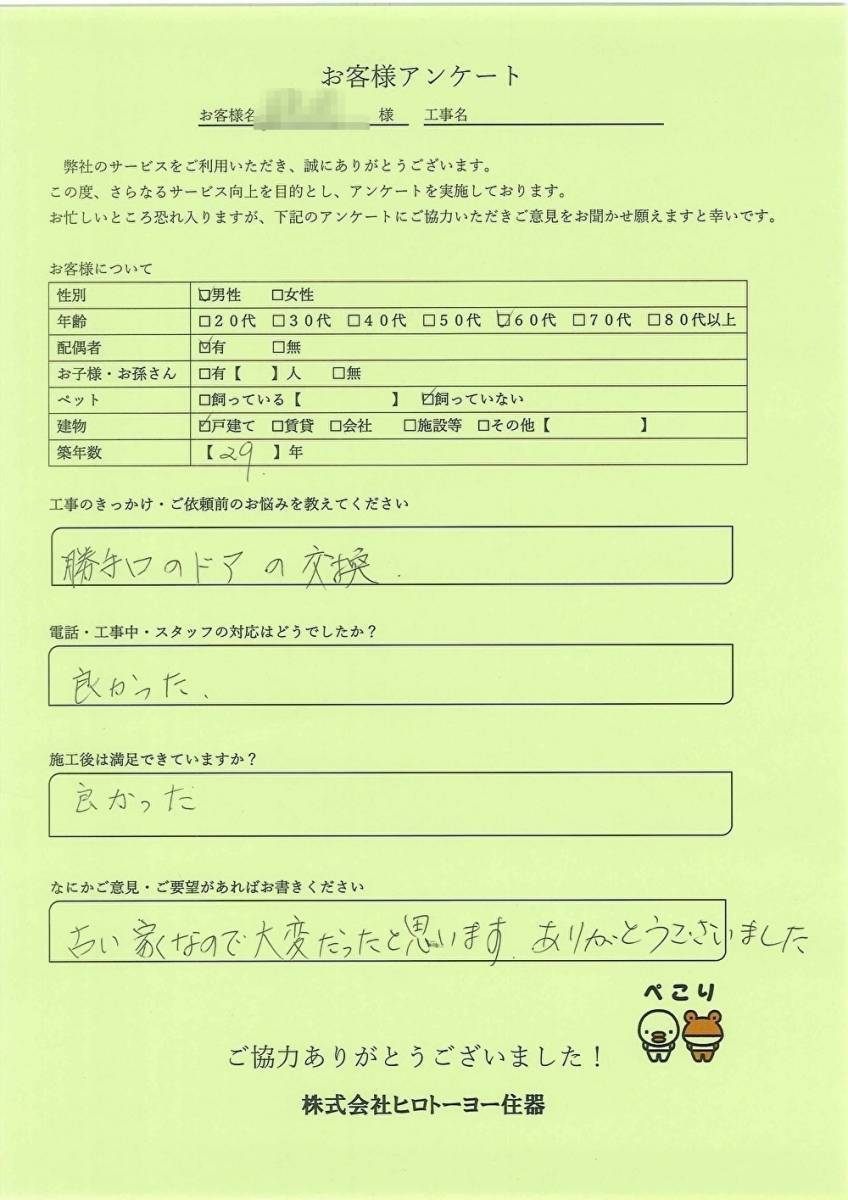 お客様アンケート
お客様名 様 工事名
弊社のサービスをご利用いただき、誠にありがとうございます。
この度、さらなるサービス向上を目的とし、アンケートを実施しております。
お忙しいところ恐れ入りますが、下記のアンケートにご協力いただきご意見をお聞かせ願えますと幸いです。
お客様について
性別 ☑男性 □女性
年齢 □20代 □30代 □40代 □50代 ☑60代 □70代 □80代以上
配偶者 ☑有 □無
お子様・お孫さん □有【 】人 □無
ペット □飼っている【 】 ☑飼っていない
建物 ☑戸建て □賃貸 □会社 □施設等 □その他【 】
築年数 【29】年
工事のきっかけ・ご依頼前のお悩みを教えてください
勝手口のドアの交換.
電話・工事中・スタッフの対応はどうでしたか？
良かった.
施工後は満足できていますか？
良かった
なにかご意見・ご要望があればお書きください
古い家なので大変だったと思います. ありがとうございました
ぺこり
ご協力ありがとうございました！
株式会社ヒロトーヨー住器